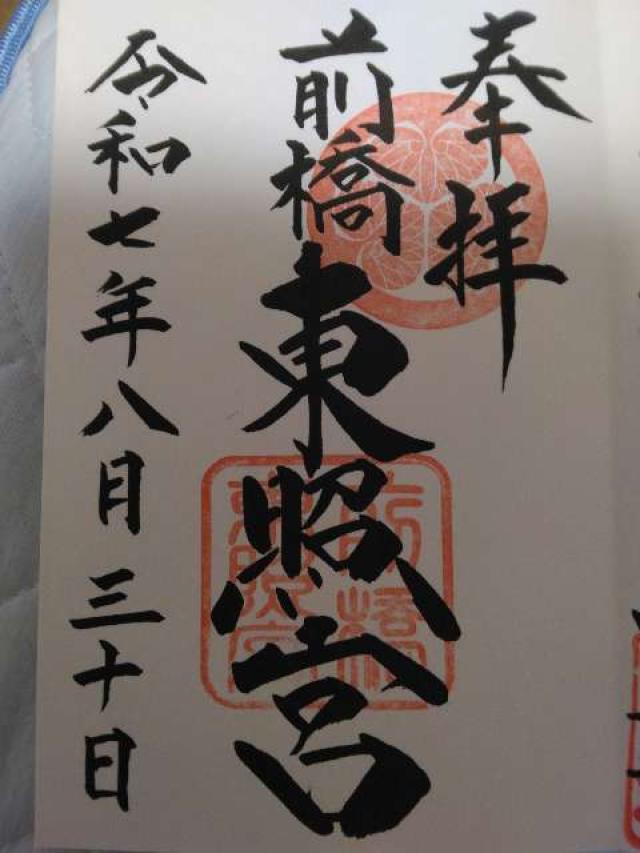 奉拝
前橋東照宮
令和七年八月三十日
前橋
東照宮